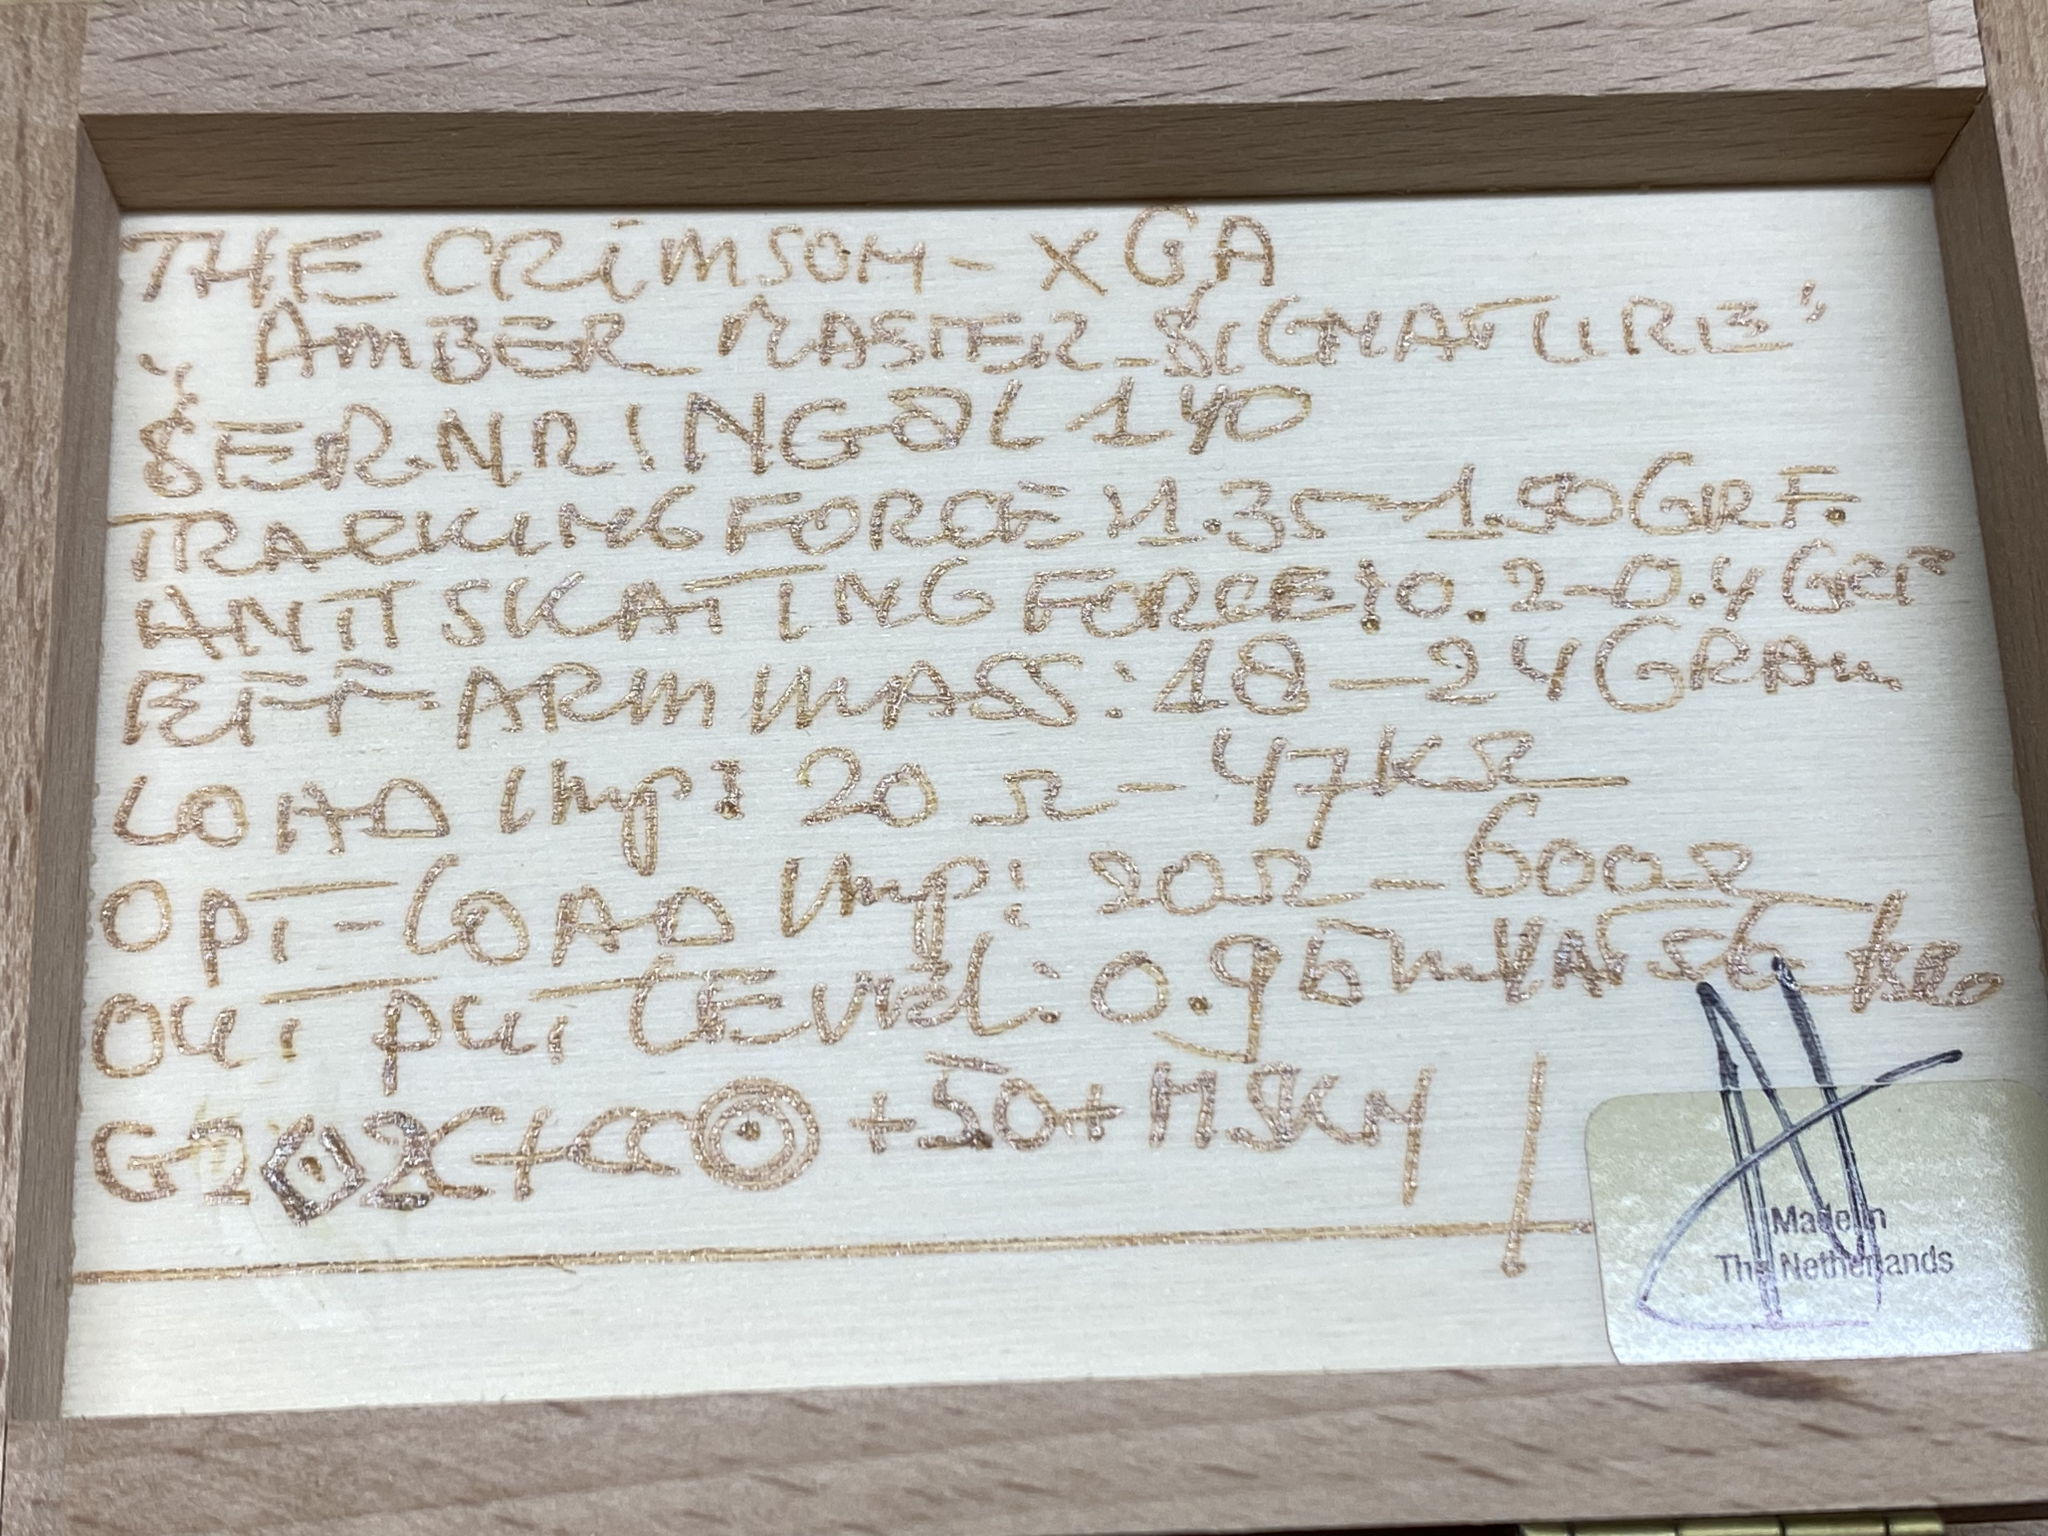 THE CRiMSON - XGA
"AMBER MASTER-SiGNATURE"
SER.NR ING
TRACKING FORCE : 1.35 - 1.50 GRF.
ANTI SKATING FORCE: 0.2-0.4 GRF
EFF ARM MASS: 18 - 24 GRAM
LOAD Imp: 20 Ω - 47KΩ
OPT-LOAD Imp: 20Ω - 600Ω
OUTPUT LEVEL: 0.95mV
+50+
Made in
The Netherlands